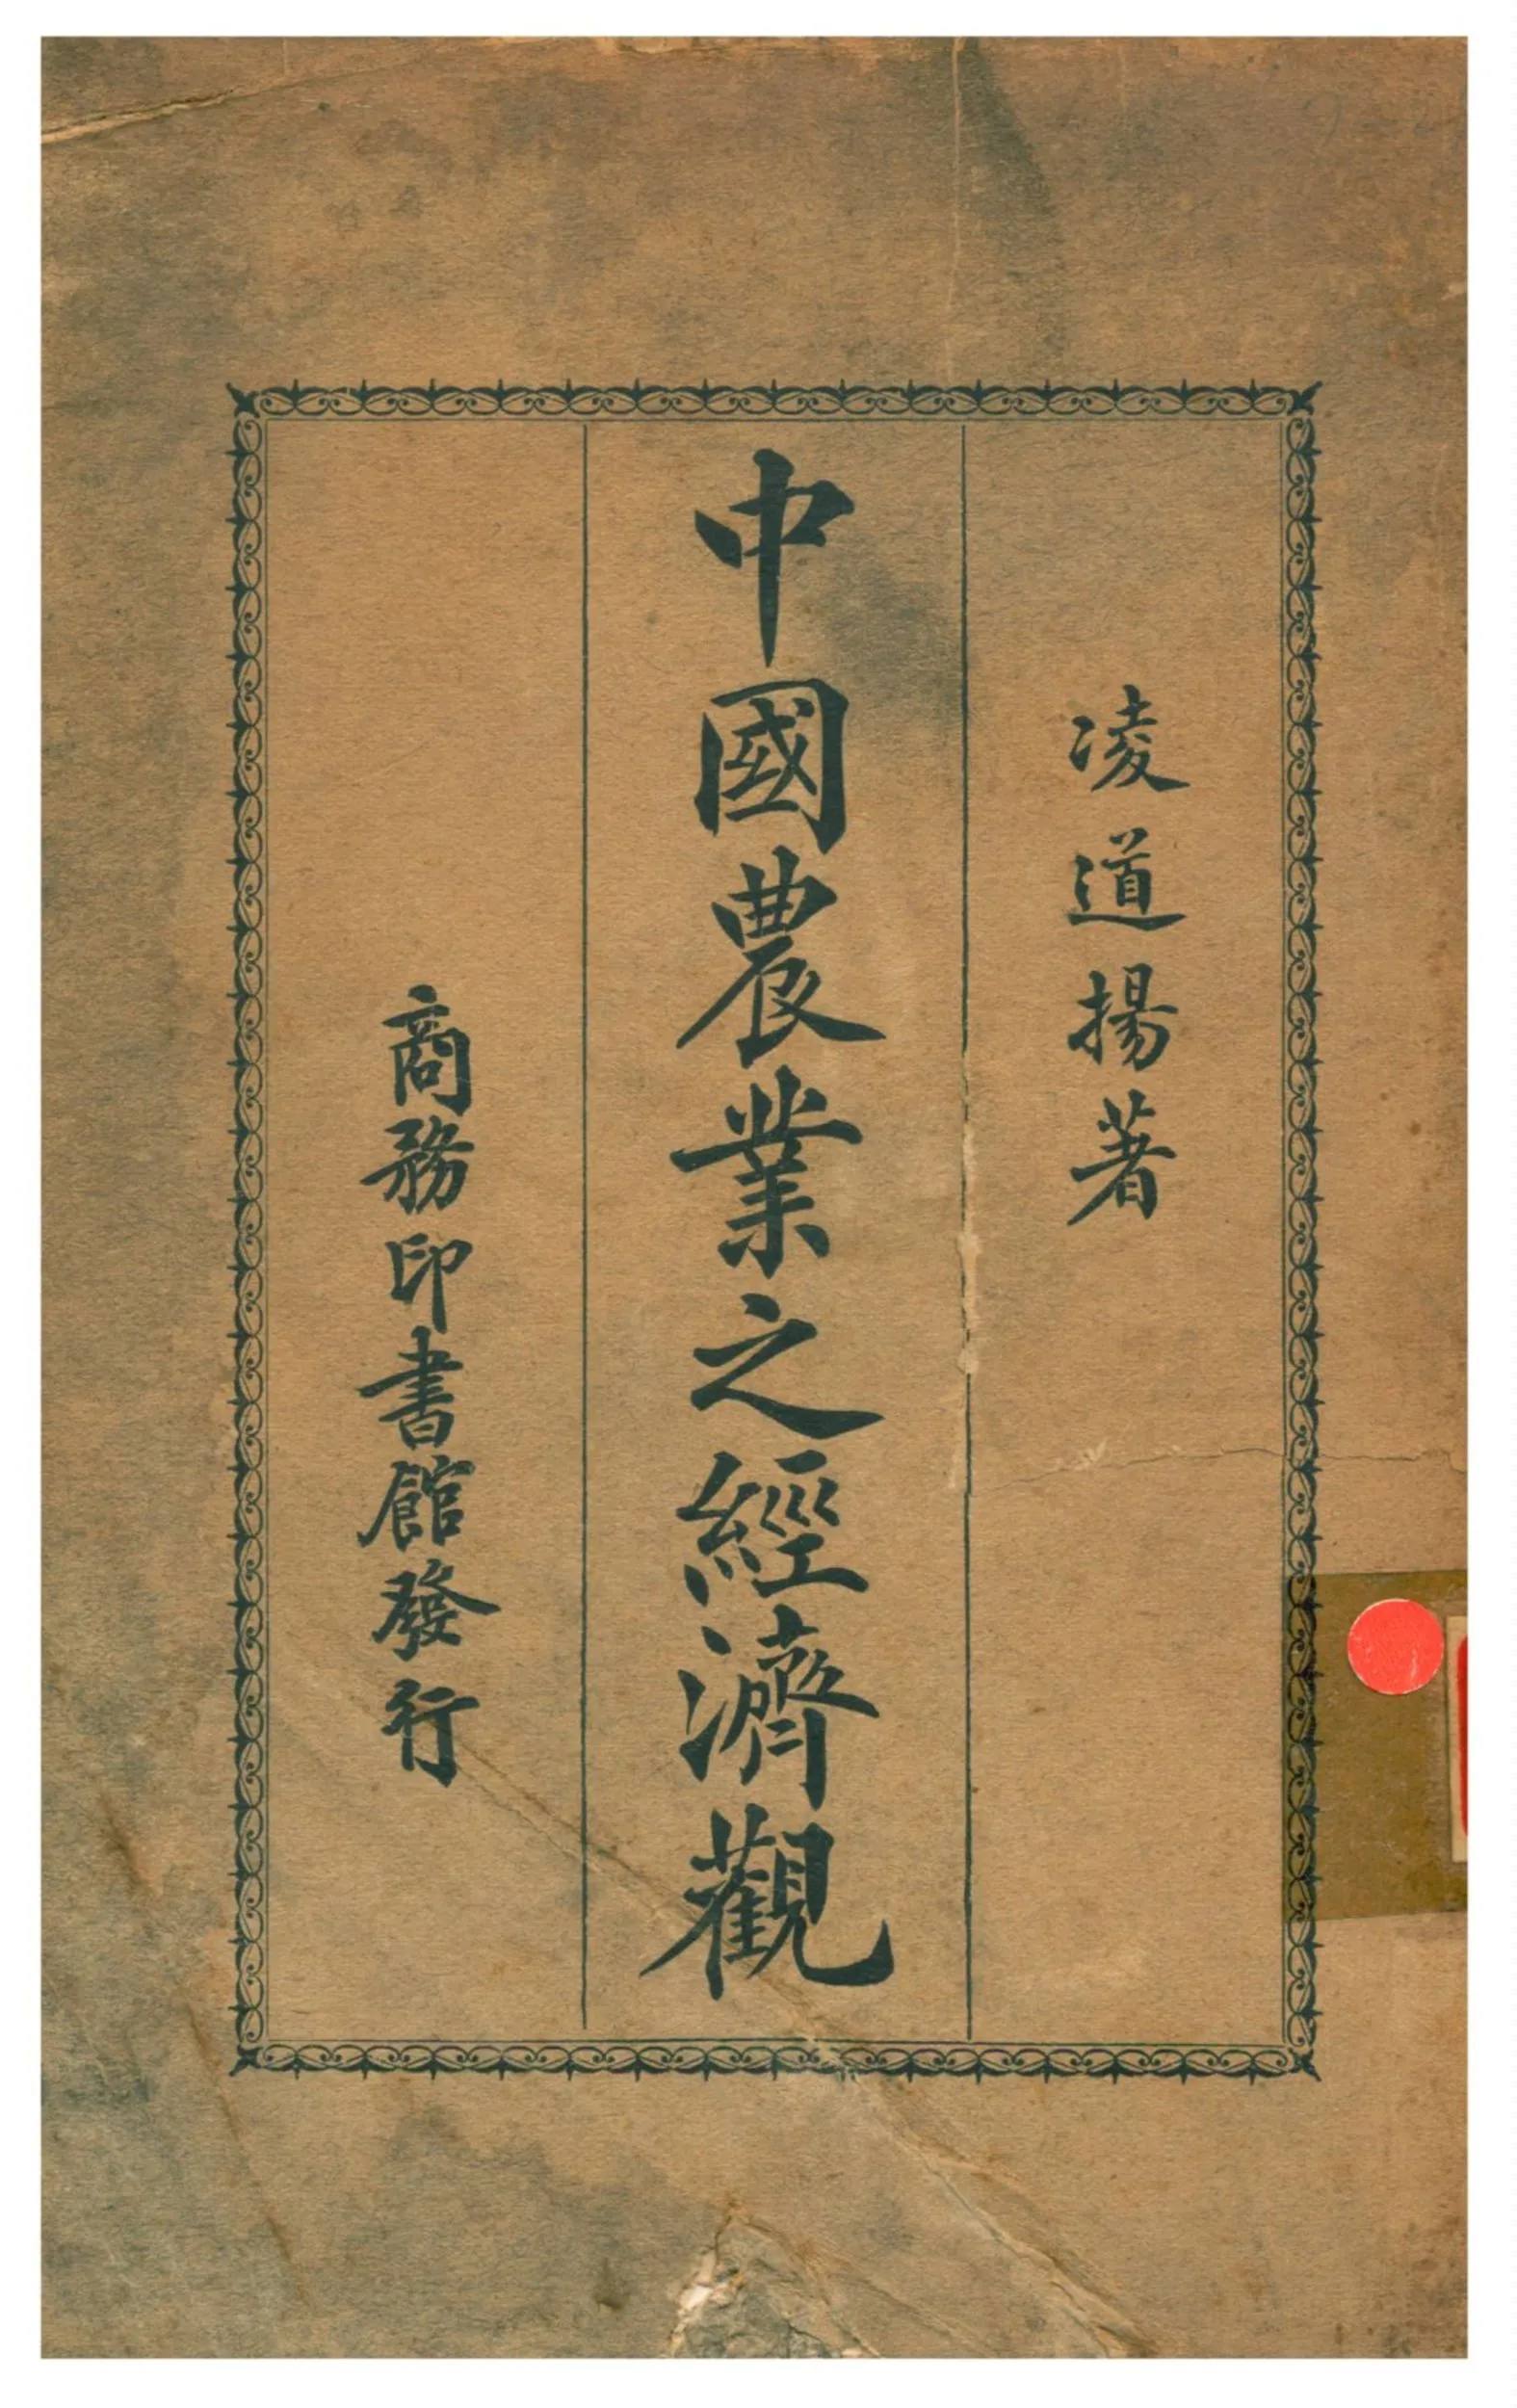 凌道揚著
中國農業之經濟觀
商務印書館發行